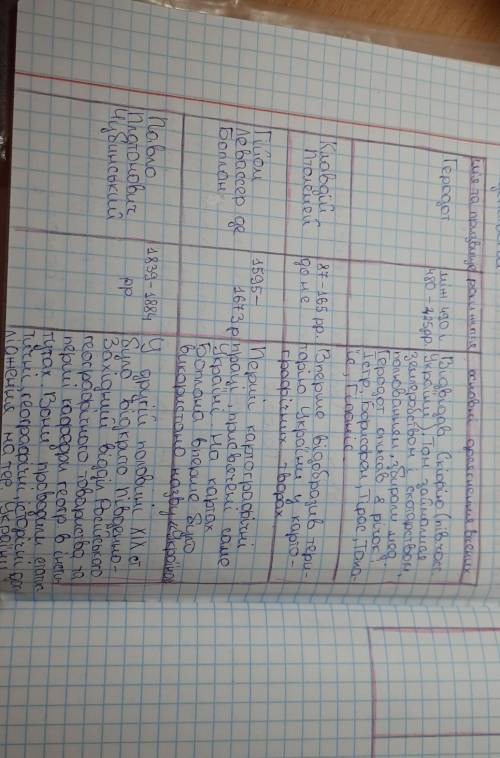 Ім'я та прізвище роки життя основні досягнення вчених
Геродот
між 490 і
480 – 425 р
Відвідав Скіфію (півд. част.
України). Там займалися
землеробством і скотарством,
полюванням, брали мед.
Геродот описав 8 річок:
Істр, Борисфен, Тірас, Гіпа-
Клавдій
Птолемей
87-165 рр.
до н.е
Вперше відобразив тери-
торію України у карто-
графічних творах
Гійом
Левассер де
Боплан
1595–
1673 р
Перші картографічні
праці, присвячені саме
Україні. На картах
Боплана вперше було
використано назву "Україна"
Павло
Платонович
Чубинський
1839-1884
рр
У другій половині XIX ст
було відкрито Південно-
Західний відділ Російського
географічного товариства та
перші кафедри геогр. в інсти-
тутах. Вони проводили етно
гічні, географічні, історичні дос
лідження на тер. України